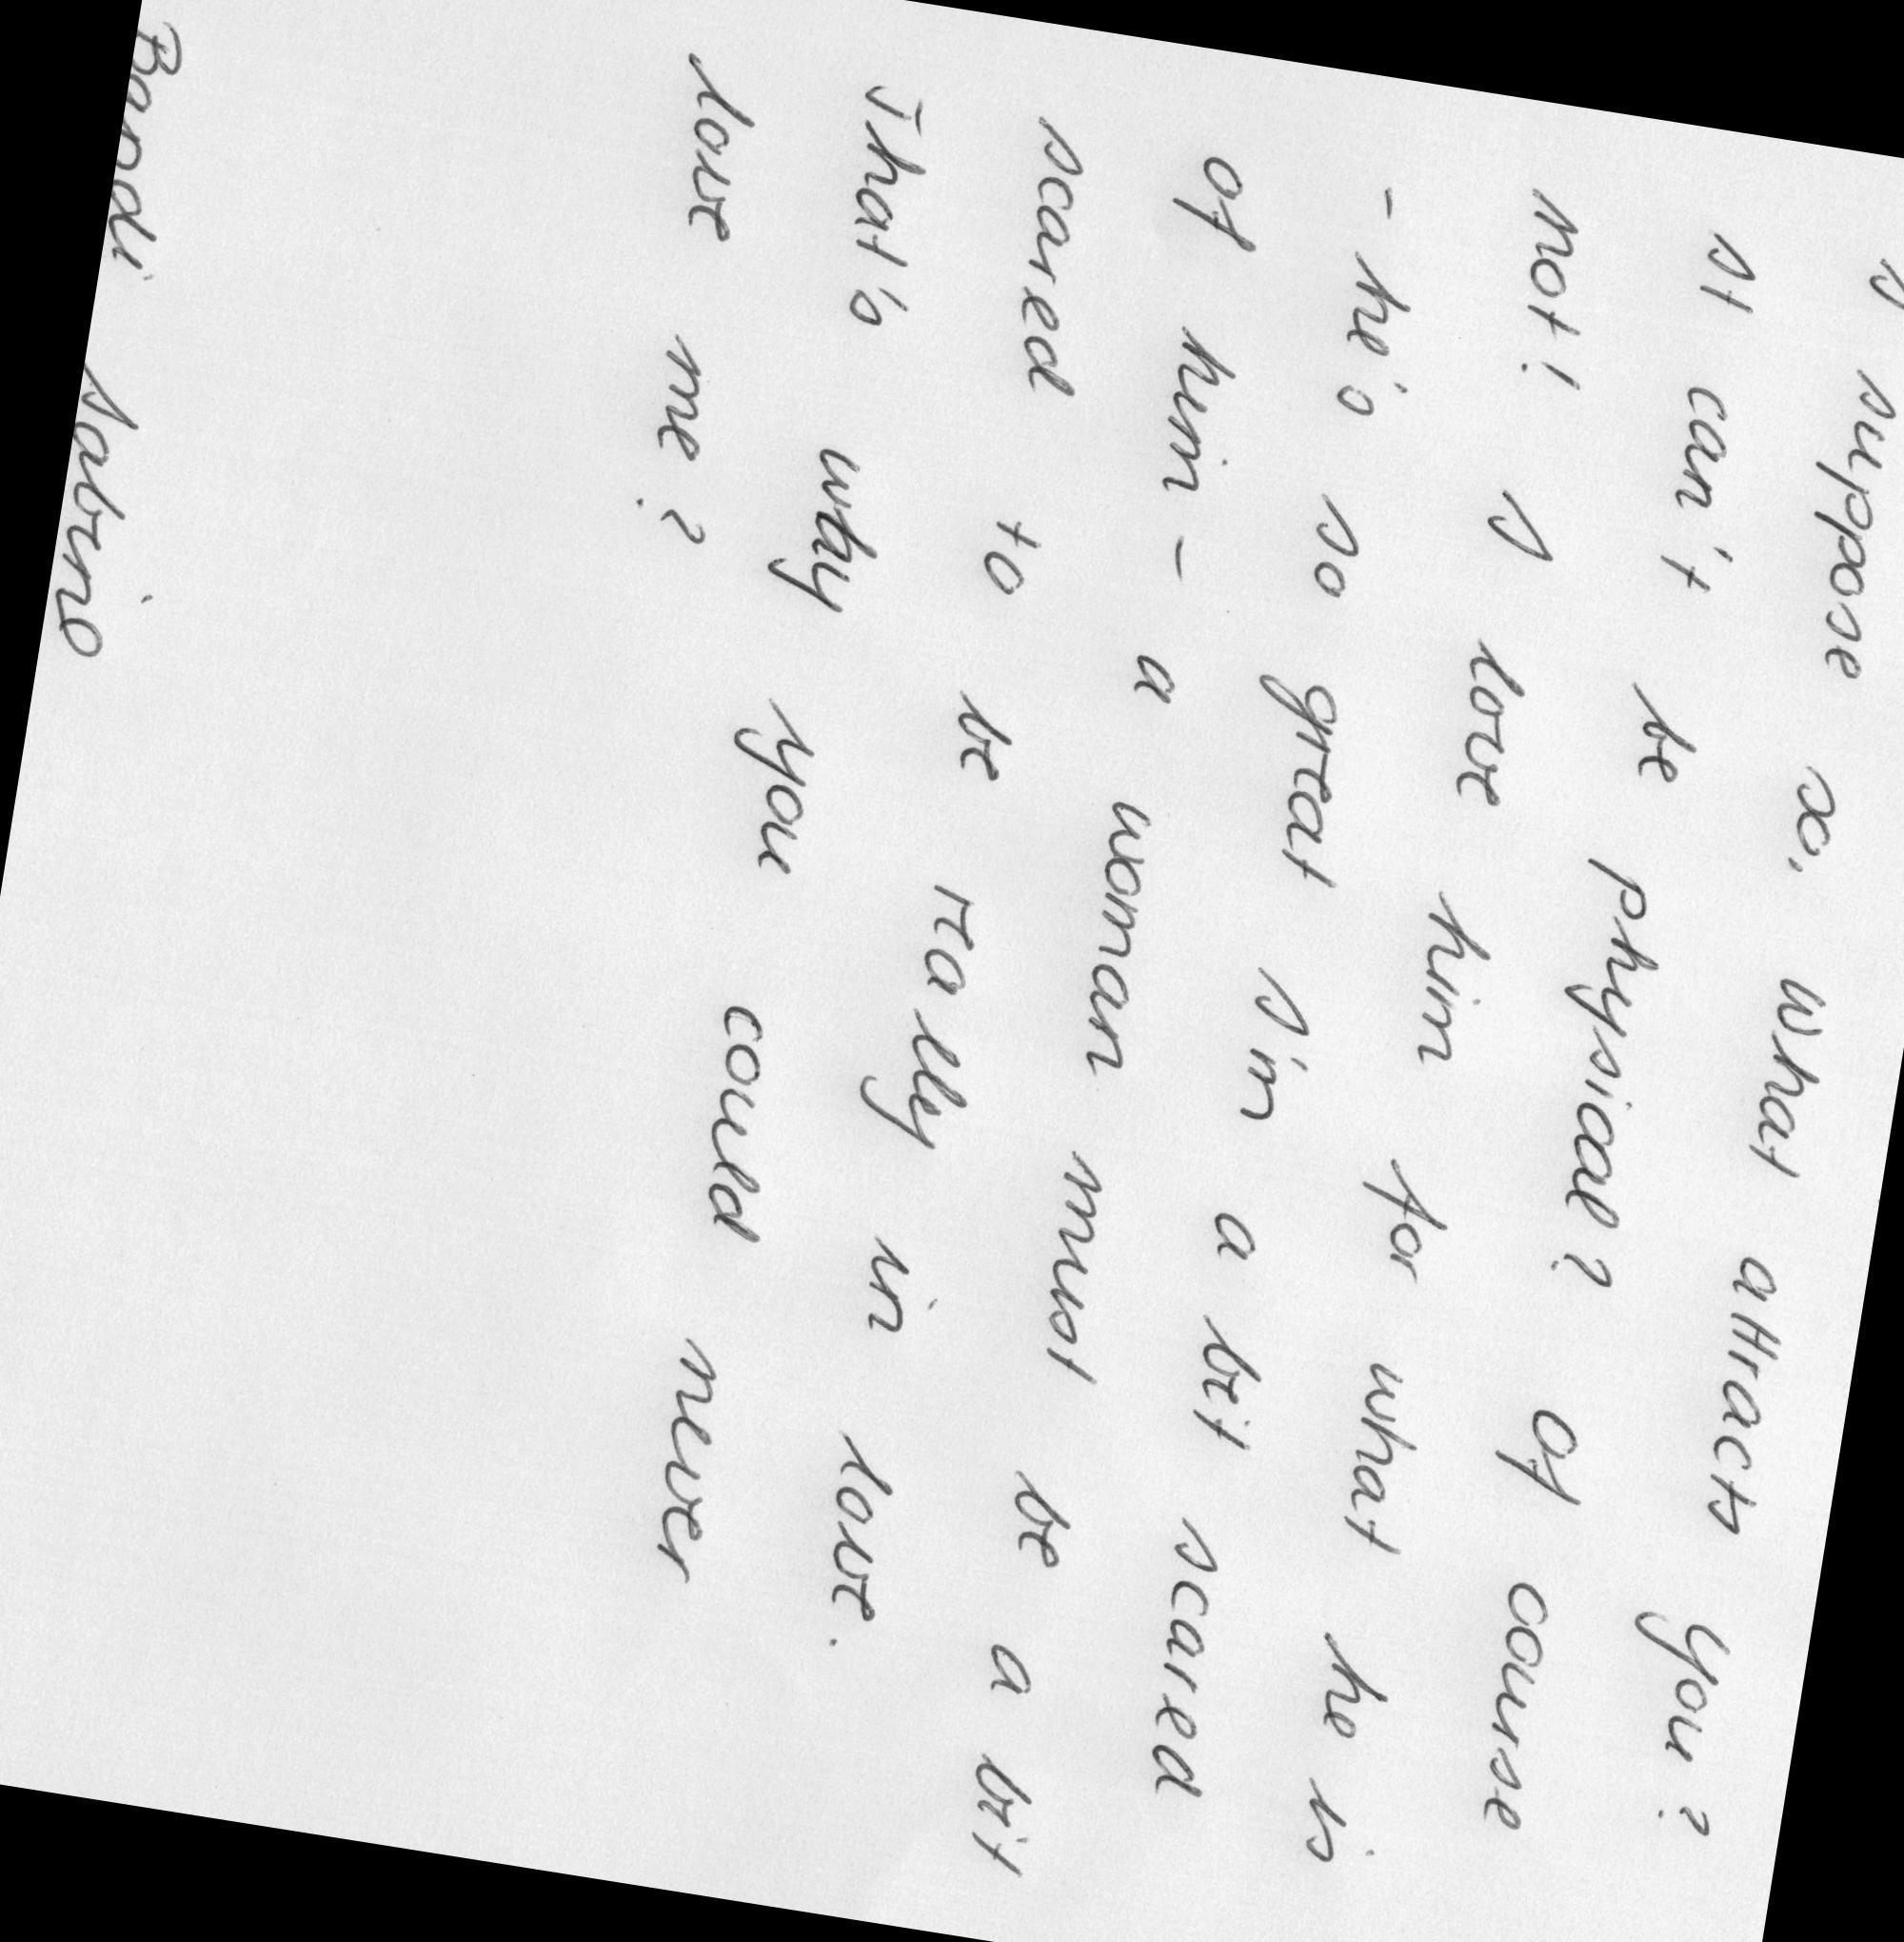 I suppose so. What attracts you?
It can't be physical? Of course
not! I love him for what he is
- he's so great I'm a bit scared
of him - a woman must be a bit
scared to be really in love.
That's why you could never
love me?
Bandi Sabrio